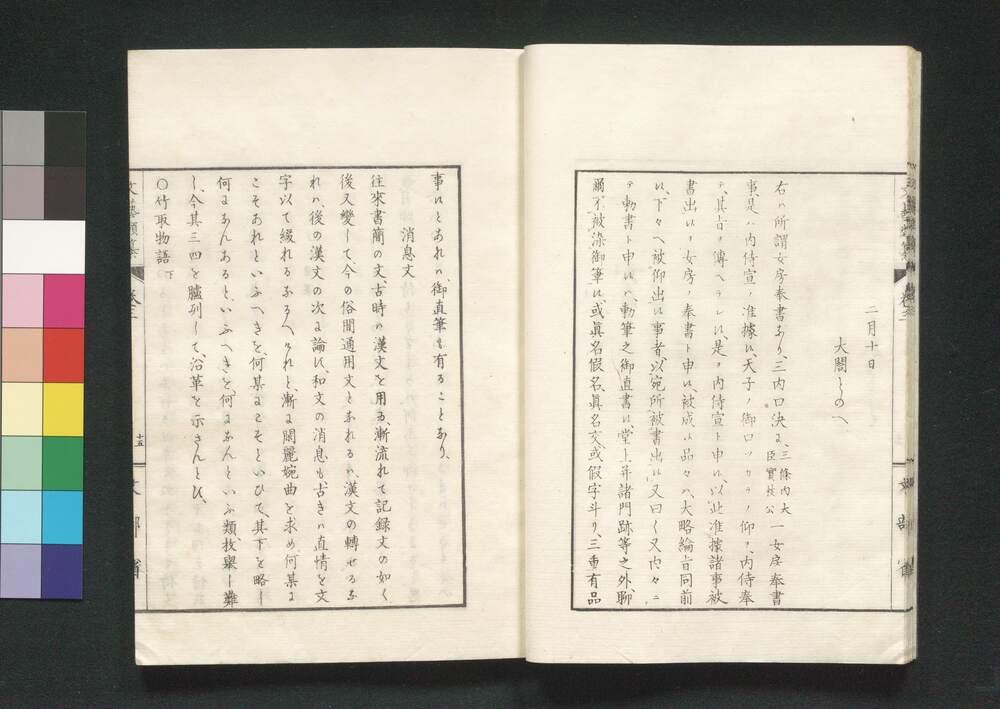 二月十日
大閤との へ
右ハ所謂女房奉書あり、三内口決に、三條內大臣實枝公一女房奉書
事、是ハ內侍宣ノ准據ニ候、天子ノ御口ツカラノ仰ヲ、內侍奉
テ、其旨ヲ傳ヘラレ候、是ヲ內侍宣ト申候、以此准據諸事被
書出候ヲ、女房ノ奉書ト申候、被成候品々ハ、大略綸旨同前
候、下々ヘ被仰出候事者、以宛所被書出候、又曰く、又內々ニ
テ勅書ト申候ハ、勅筆之御直書候、堂上并諸門跡等之外、聊
爾不被染御筆候、或眞名假名、眞名交、或假字斗リ、三重有品
事候とあれハ、御直筆も有ることあり、
消息文
往來書簡の文、古時ハ漢文を用る、漸流れて記録文の如く、
後又變して、今の俗間通用文とあれるハ、漢文の轉せるあ
れハ、後の漢文の次に論し、和文の消息も古きハ直情を文
字以て綴れるあるへけれと、漸に閑麗婉曲を求め、何某に
こそあれといふへきを、何某にこそといひて、其下を略し
何にあんあるといふへきを、何にあんといふ類、枚擧し難
し、今其三四を臚列して、沿革を示さんとし、
○竹取物語下
文藝類纂 卷三
十五
文部省